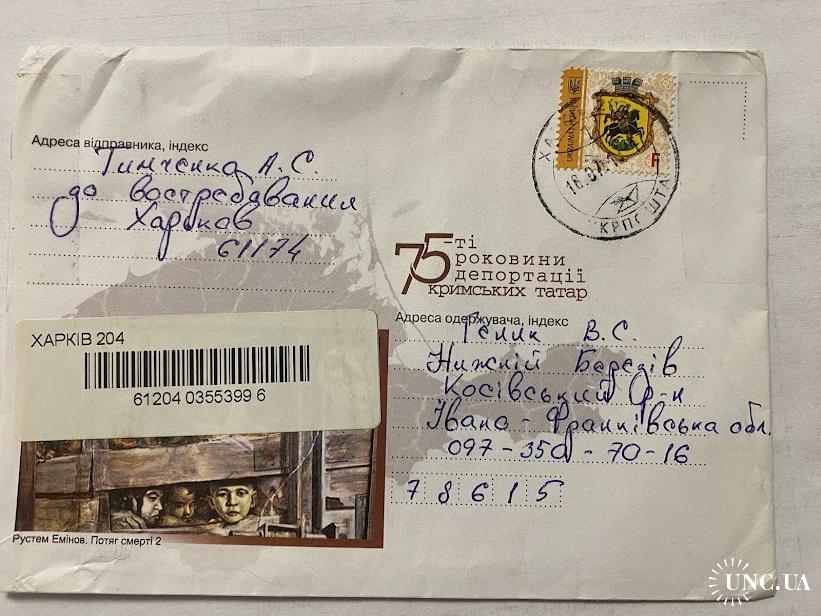 Адреса відправника, індекс
Тимченко А.С.
до востребавания
Харьков
61174
UKRAINA УКРАЇНА
F
16.07.1
УКРПОШТА
75-ті
роковини
депортації
кримських татар
Адреса одержувача, індекс
В.С.
Нижній Березів
Косівський р-н
Івано-Франківська обл.
097-350-70-16
78615
ХАРКІВ 204
61204 0355399 6
Рустем Емінов. Потяг смерті 2
UNC.UA